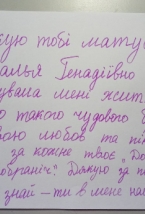 кую тобі мату
алья Генадіївно
увала мені жит
о такого чудового б
ою любов та пі
за кожне твоє „До
добраніч". Дякую за п
знай – ти в мене на